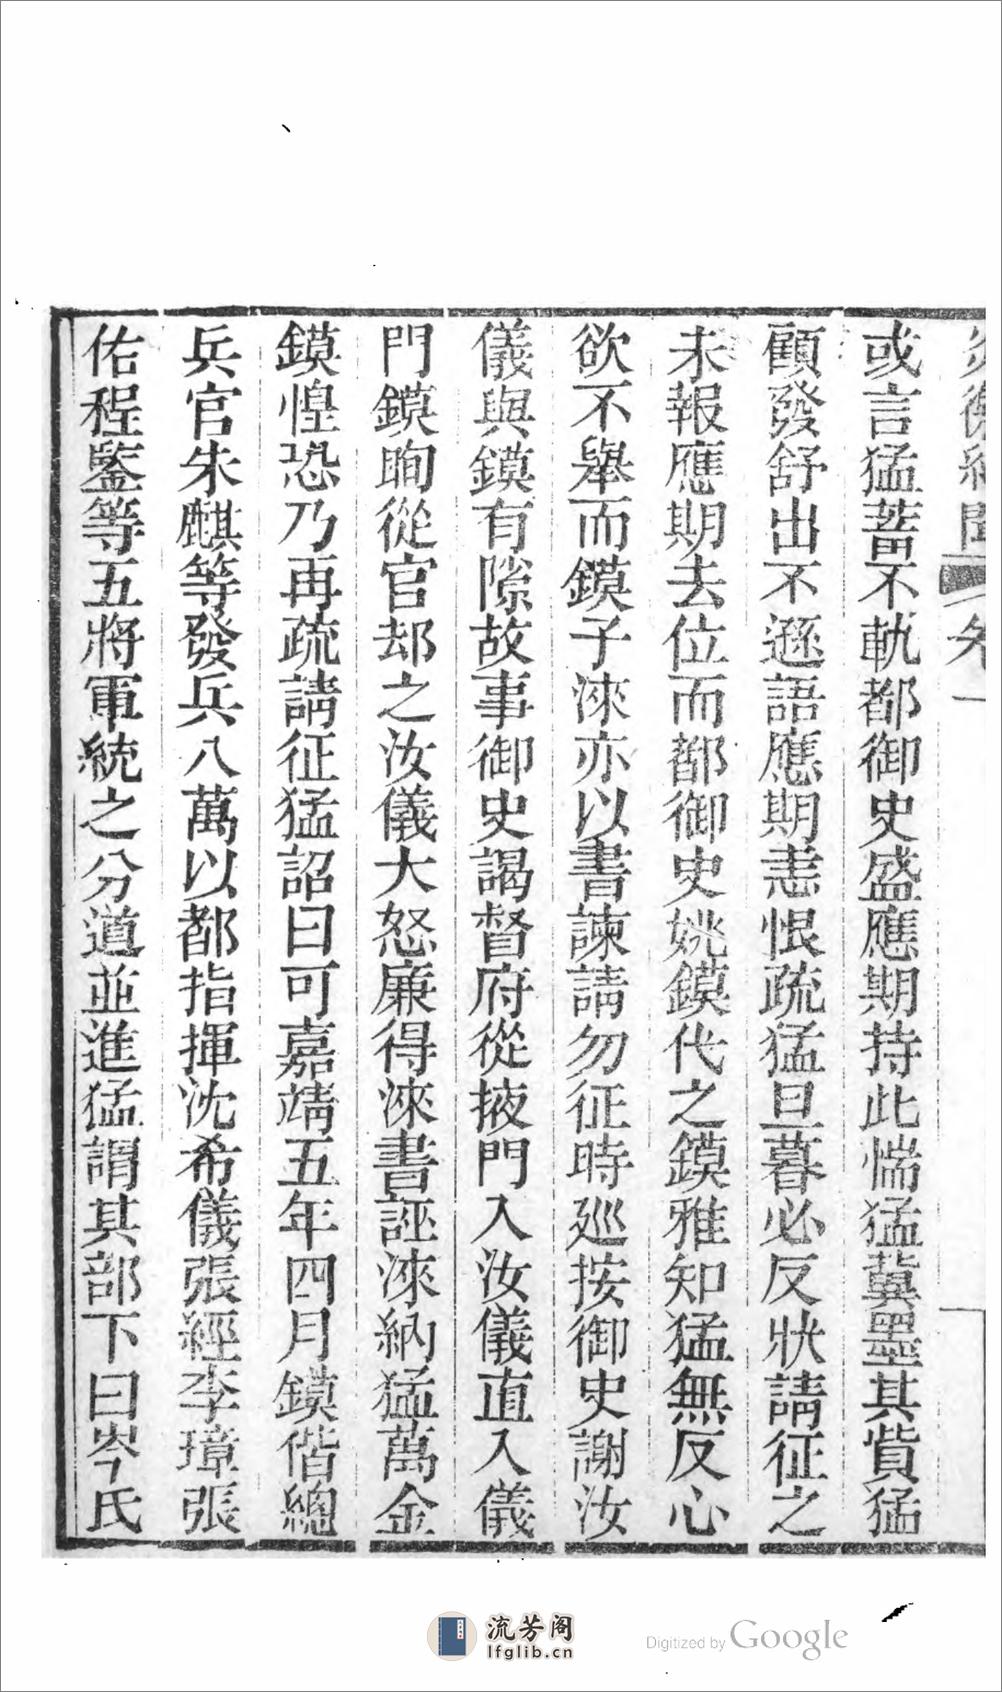 炎徼紀聞 卷一
或言猛蓄不軌都御史盛應期持此惴猛冀墨其貲猛
顧發舒出不遜語應期恚恨疏猛旦暮必反狀請征之
未報應期去位而都御史姚鏌代之鏌雅知猛無反心
欲不舉而鏌子淶亦以書諫請勿征時廵按御史謝汝
儀與鏌有隙故事御史謁督府從掖門入汝儀直入儀
門鏌眴從官却之汝儀大怒廉得淶書誣淶納猛萬金
鏌惶恐乃再疏請征猛詔曰可嘉靖五年四月鏌偕總
兵官朱麒等發兵八萬以都指揮沈希儀張經李璋張
佑程鑒等五將軍統之分道並進猛謂其部下曰岑氏
流芳阁
lfglib.cn
Digitized by Google